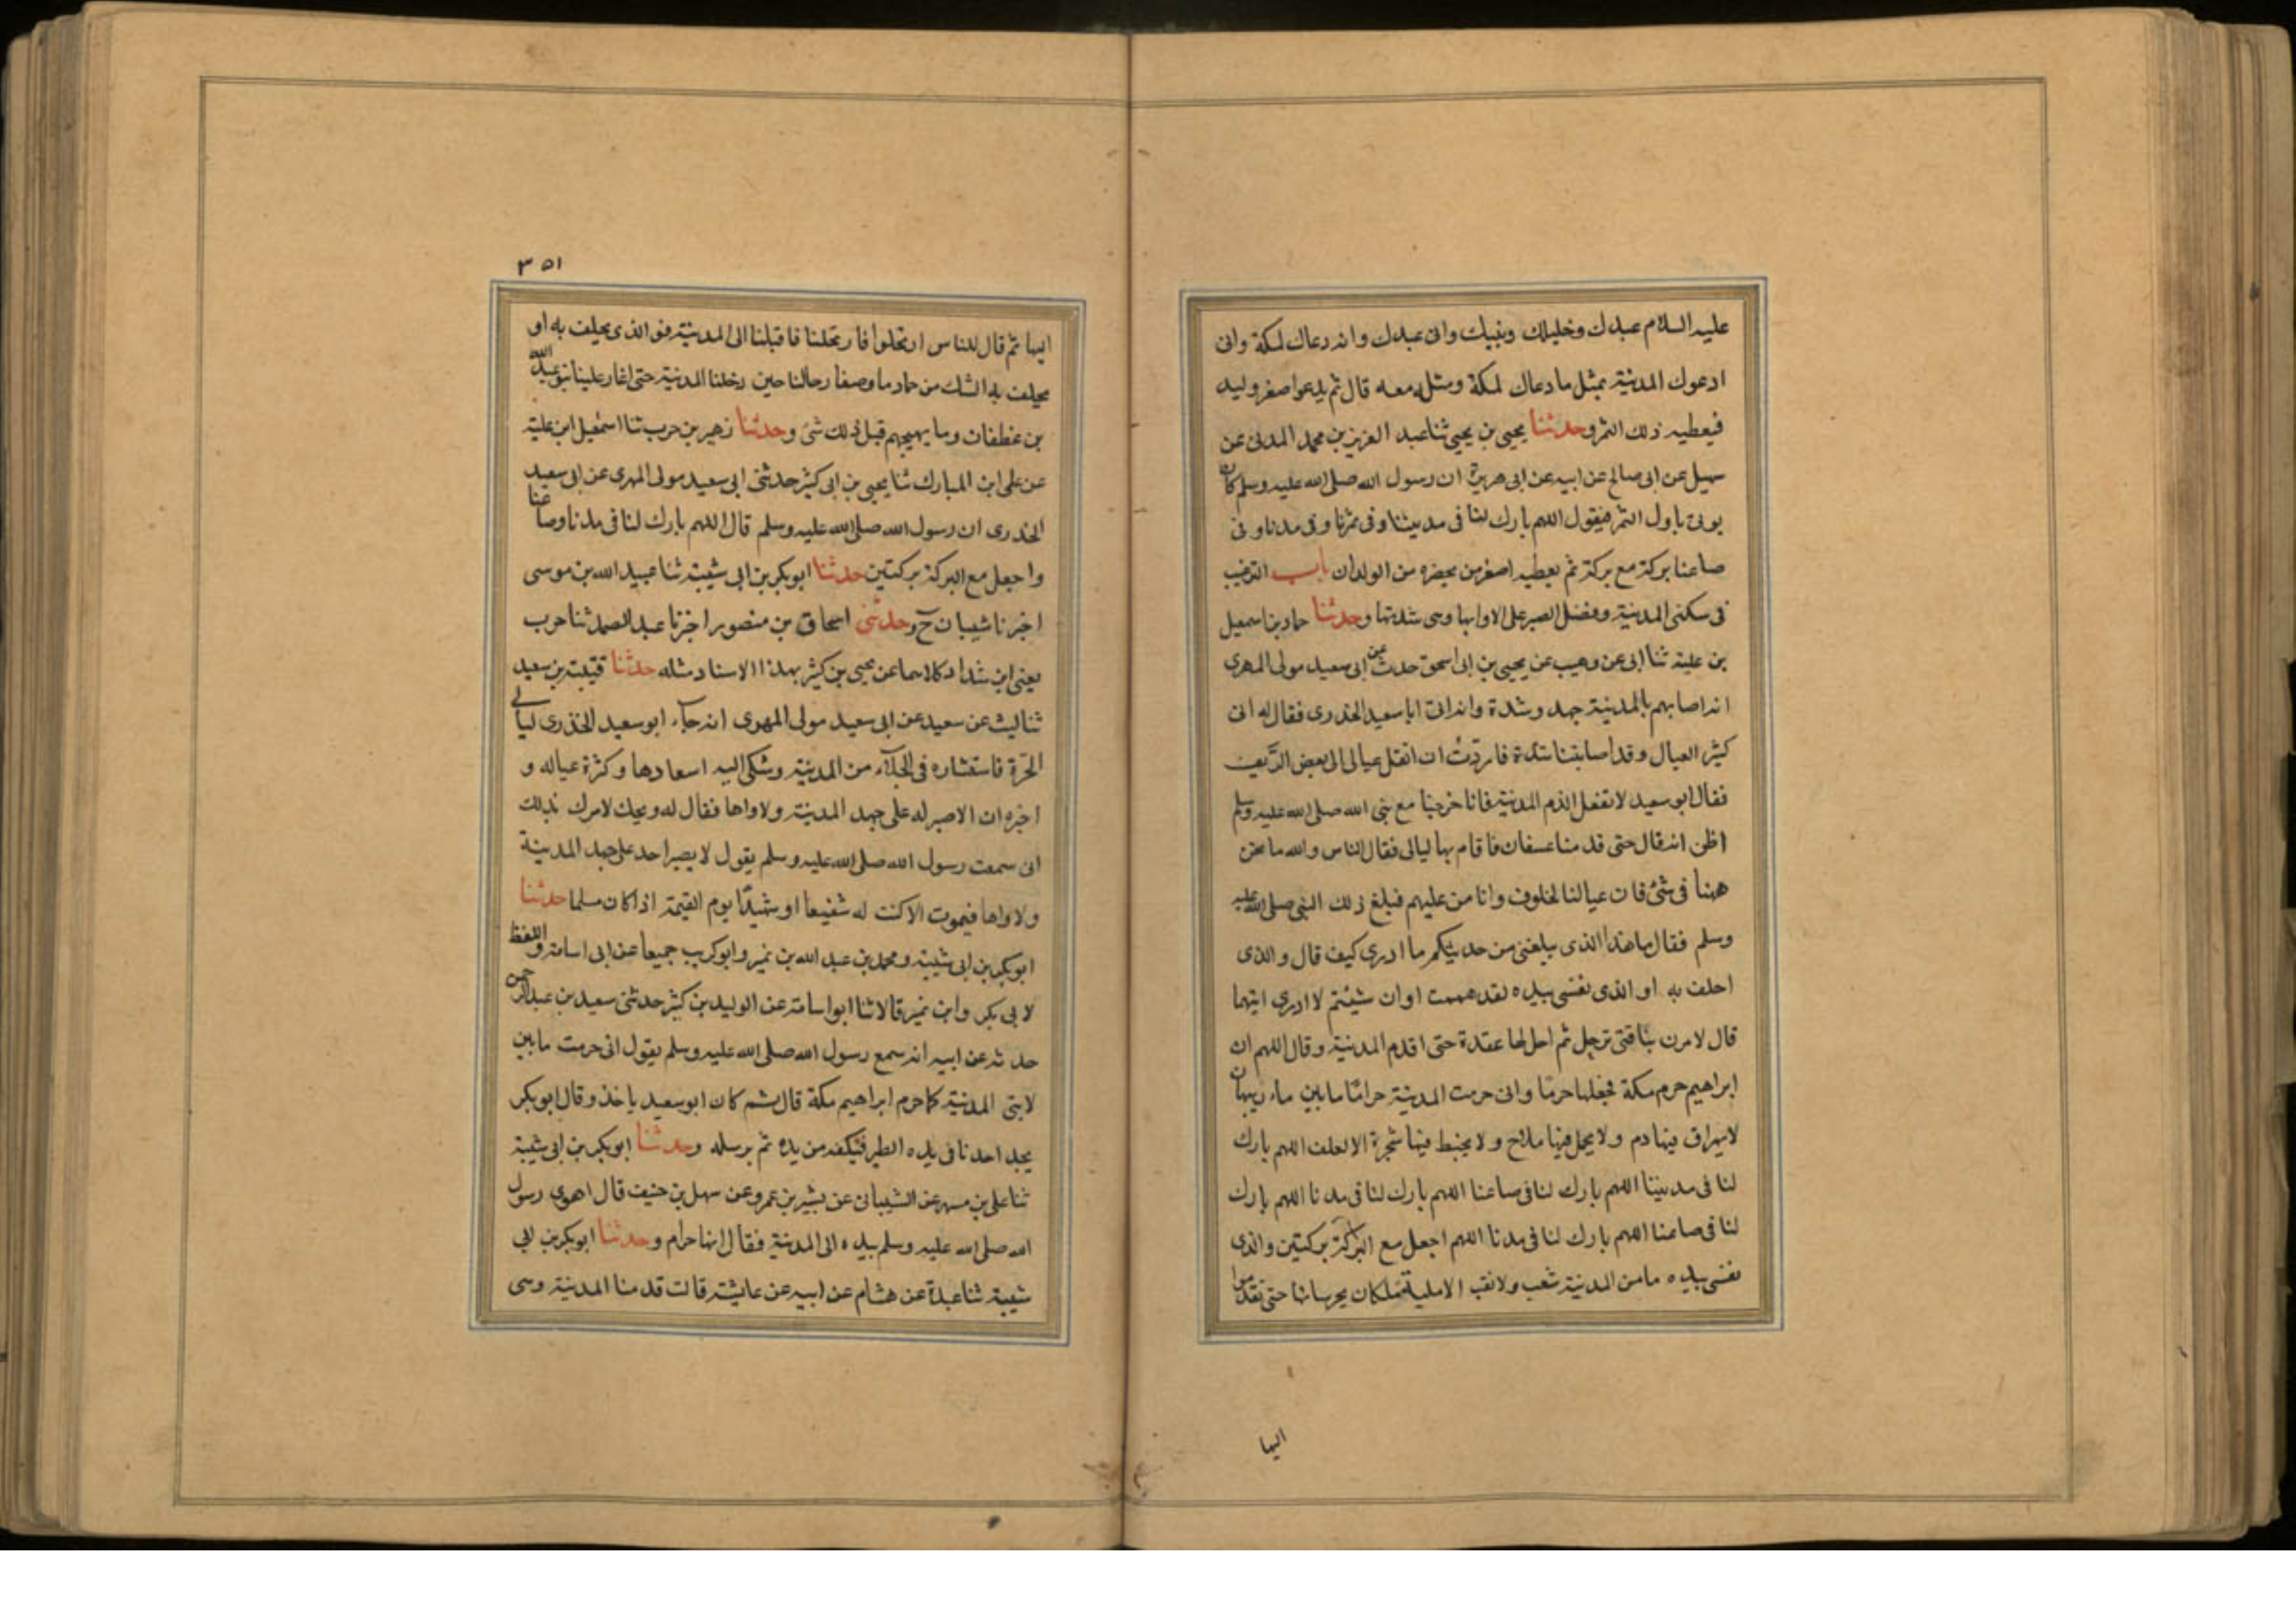 عليه السلام عبدك وخليلك ونبيك وانى عبدك وانه دعاك لمكة وانى
ادعوك المدينة بمثل ما دعاك لمكة ومثله معه قال ثم يدعوا صغر وليد
فيعطيه ذلك الثمر وحدثنا يحيى بن يحيى ثنا عبد العزيز بن محمد المدنى عن
سهيل عن ابى صالح عن ابيه عن ابى هريرة ان رسول الله صلى الله عليه وسلم كان
يوتى باول الثمر فيقول اللهم بارك لنا فى مدينتنا وفى ثمرنا وفى مدنا وفى
صاعنا بركة مع بركة ثم يعطيه اصغر من يحضره من الولدان باب الترغيب
فى سكنى المدينة وفضل الصبر على لاوايها وسى شدتها وحدثنا حماد بن اسمعيل
بن علية ثنا ابى عن وهيب عن يحيى بن ابى اسحق حدث عن ابى سعيد مولى المهرى
انه اصابهم بالمدينة جهد وشدة وانه اتى ابا سعيد الخدرى فقال له انى
كثير العيال وقد اصابتنا شدة فاردت ان انقل عيالى الى بعض الريف
فقال ابو سعيد لا تفعل الذم المدينة فانا خرجنا مع نبى الله صلى الله عليه وسلم
اظن انه قال حتى قدمنا عسفان فاقام بها ليالى فقال الناس والله ما نحن
ههنا فى شئ فان عيالنا لخلوف وانا من عليهم فبلغ ذلك النبى صلى الله عليه
وسلم فقال ما هذا الذى يبلغنى من حديثكم ما ادرى كيف قال والذى
احلف به او الذى نفسى بيده لقد هممت او ان شيئتم لا ادرى ايتهما
قال لامرن بناقتى ترحل ثم احل لها عقدة حتى اقدم المدينة وقال اللهم ان
ابراهيم حرم مكة فجعلها حرما وانى حرمت المدينة حراما ما بين
لا يهراق فيها دم ولا يحمل فيها سلاح ولا يخبط فيها شجرة الا لعلف اللهم بارك
لنا فى مدينتنا اللهم بارك لنا فى صاعنا اللهم بارك لنا فى مدنا اللهم بارك
لنا فى صاعنا اللهم بارك لنا فى مدنا اللهم اجعل مع البركة بركتين والذى
نفسى بيده ما من المدينة شعب ولا نقب الا عليه ملكان يحرسانها حتى تقدموا
اليها
٣٥١
اليها ثم قال للناس ارتحلوا فارتحلنا فاقبلنا الى المدينة فو الذى يحلف به او
يحلف به الشك من حماد ما وضعنا رحالنا حين دخلنا المدينة حتى اغار علينا بنو عبد الله
بن غطفان وما يهيجهم قبل ذلك شئ وحدثنا زهير بن حرب ثنا اسمعيل ابن علية
عن على ابن المبارك ثنا يحيى بن ابى كثير حدثنى ابى سعيد مولى المهرى عن ابى سعيد
الخدرى ان رسول الله صلى الله عليه وسلم قال اللهم بارك لنا فى مدنا وصاعنا
واجعل مع البركة بركتين حدثنا ابو بكر بن ابى شيبة ثنا عبيد الله بن موسى
اخبرنا شيبان ح وحدثنى اسحاق بن منصور اخبرنا عبد الصمد ثنا حرب
يعنى ابن شداد كلاهما عن يحيى بن كثير بهذا الاسناد مثله حدثنا قتيبة بن سعيد
ثنا ليث عن سعيد عن ابى سعيد مولى المهرى انه جآء ابو سعيد الخدرى ليالى
الحرة فاستشاره فى الجلآء من المدينة وشكى اليه اسعارها وكثرة عياله و
اخبره ان لا صبر له على جهد المدينة ولاواها فقال له ويحك لا امرك بذلك
انى سمعت رسول الله صلى الله عليه وسلم يقول لا يصبر احد على جهد المدينة
ولاواها فيموت الا كنت له شفيعا او شهيدا يوم القيمة اذا كان مسلما حدثنا
ابو بكر بن ابى شيبة ومحمد بن عبد الله بن نمير وابو كريب جميعا عن ابى اسامة واللفظ
لابى بكر وابن نمير قالا ثنا ابو اسامة عن الوليد بن كثير حدثنى سعيد بن عبد الرحمن
حدثه عن ابيه انه سمع رسول الله صلى الله عليه وسلم يقول انى حرمت ما بين
لابتى المدينة كما حرم ابراهيم مكة قال ثم كان ابو سعيد ياخذ وقال ابو بكر
يجد احدنا فى يده الطير فيكفه من يده ثم يرسله وحدثنا ابو بكر بن ابى شيبة
ثنا على بن مسهر عن الشيبانى عن بشير بن عمرو عن سهل بن حنيف قال اهوى رسول
الله صلى الله عليه وسلم بيده الى المدينة فقال انها حرام وحدثنا ابو بكر بن ابى
شيبة ثنا عبدة عن هشام عن ابيه عن عايشة قالت قدمنا المدينة وسى